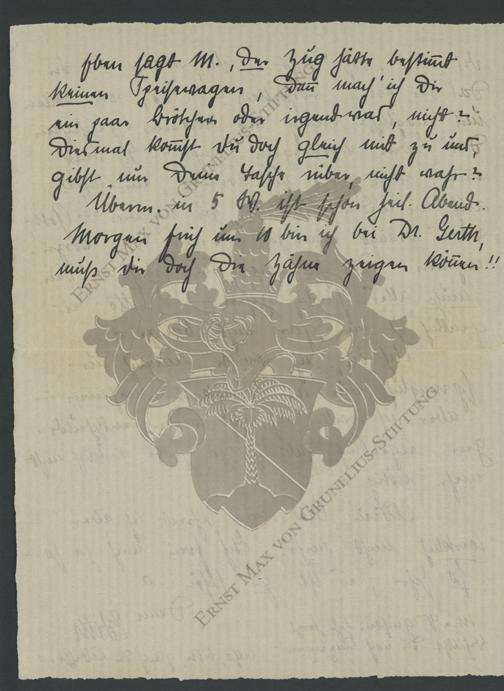 Eben sagt M., der Zug hätte bestimmt
keinen Speisewagen, dann mach' ich Dir
ein paar Brötchen oder irgendwas, nicht?
Diesmal kommst Du doch gleich mit zu uns,
gibst nur Deine Tasche rüber, nicht wahr?
Überm. in 5 W. ist schon heil. Abend.
Morgen früh um 10 bin ich bei Dr. Gerth,
muß dir doch die Zähne zeigen können!!
ERNST MAX VON GRUNELIUS-STIFTUNG
ERNST MAX VON GRUNELIUS-STIFTUNG